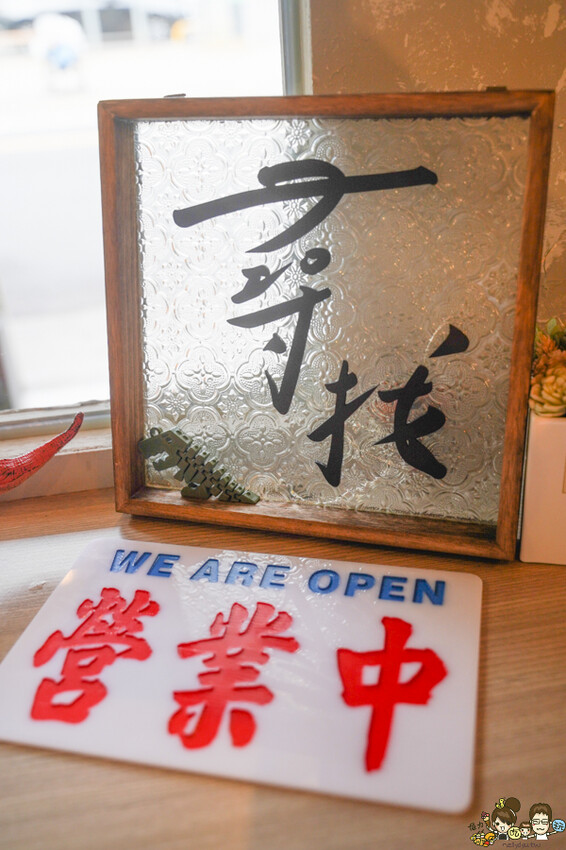 尋找
WE ARE OPEN
營業中